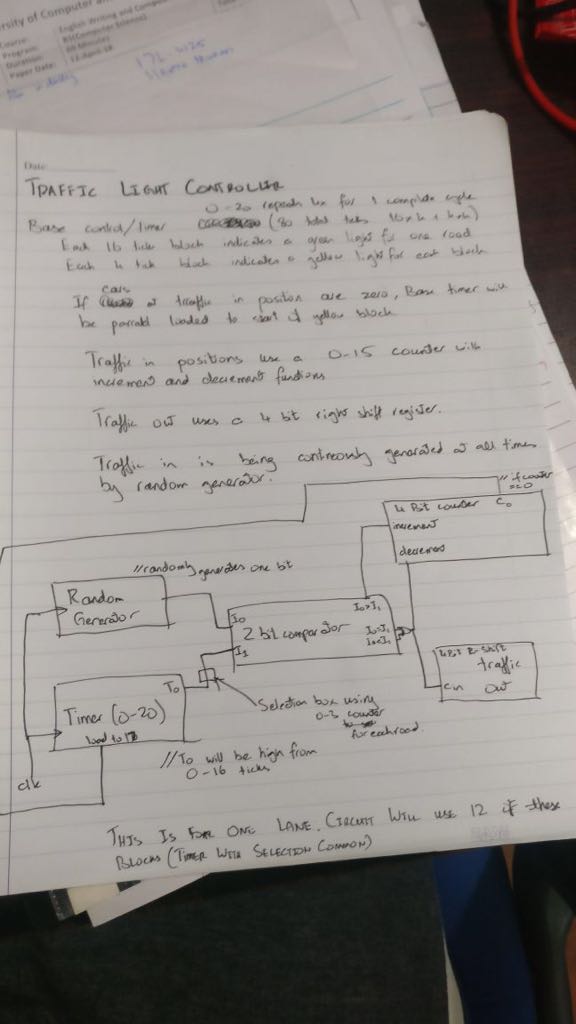 sity of Computer an
Course:
English Writing and Compo
Program:
BS(Computer Science)
Duration:
60 Minutes
Paper Date:
12-April-18
Date:
TRAFFIC LIGHT CONTROLLER
0-20 repeats 4x for 1 complete cycle
Base control/timer (80 total ticks 16x4 + 4x4)
Each 16 tick block indicates a green light for one road
Each 4 tick block indicates a yellow light for each block
cars
If at traffic in position are zero, Base timer will
be parralel loaded to start of yellow block
Traffic in positions use a 0-15 counter with
increment and decrement functions
Traffic out uses a 4 bit right shift register.
Traffic in is being continously generated at all times
by random generator.
// if counter
==0
4 Bit counter C₀
increment
decrement
//randomly generates one bit
Random
Generator
I₀
I₁
2 bit comparator
I₀>I₁
I₀=I₁
I₀<I₁
4Bit R-shift
traffic
out
Cin
T₀
Timer (0-20)
load to 17
Selection box using
0-3 counter
for each road.
clk
//T₀ will be high from
0-16 ticks
THIS IS FOR ONE LANE. CIRCUIT WILL USE 12 of these
BLOCKS (TIMER WITH SELECTION COMMON)